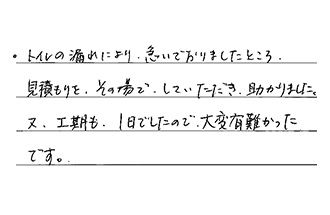 ・トイレの漏れにより、急いでおりましたところ、
見積もりを、その場で、していただき、助かりました。
又、工期も、1日でしたので、大変有難かった
です。